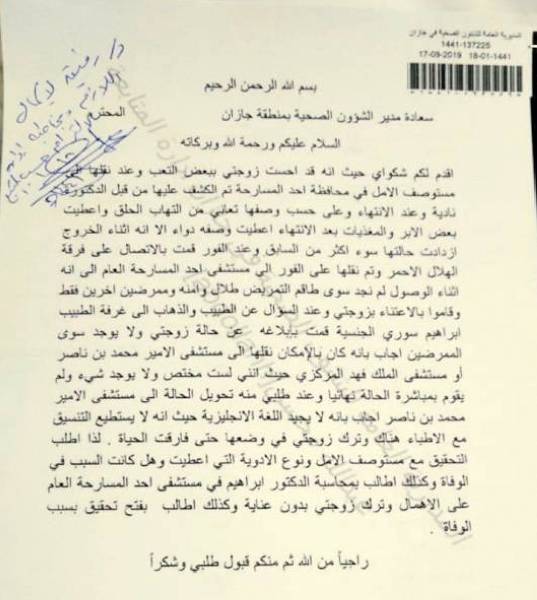 المديرية العامة للشئون الصحية في جازان
1441-137225
17-09-2019 18-01-1441
بسم الله الرحمن الرحيم
د/ رفيقة لإكمال
اللازم
سعادة مدير الشؤون الصحية بمنطقة جازان المحترم
السلام عليكم ورحمة الله وبركاته
اقدم لكم شكواي حيث انه قد احست زوجتي ببعض التعب وعند نقلها الى
مستوصف الامل في محافظة احد المسارحة تم الكشف عليها من قبل الدكتورة
نادية وعند الانتهاء وعلى حسب وصفها تعاني من التهاب الحلق واعطيت
بعض الابر والمغذيات بعد الانتهاء اعطيت وصفه دواء الا انه اثناء الخروج
ازدادت حالتها سوء اكثر من السابق وعند الفور قمت بالاتصال على فرقة
الهلال الاحمر وتم نقلها على الفور الى مستشفى احد المسارحة العام الى انه
اثناء الوصول لم نجد سوى طاقم التمريض طلال وامنه وممرضين اخرين فقط
وقاموا بالاعتناء بزوجتي وعند السؤال عن الطبيب والذهاب الى غرفة الطبيب
ابراهيم سوري الجنسية قمت بإبلاغه عن حالة زوجتي ولا يوجد سوى
الممرضين اجاب بانه كان بالإمكان نقلها الى مستشفى الامير محمد بن ناصر
أو مستشفى الملك فهد المركزي حيث انني لست مختص ولا يوجد شيء ولم
يقوم بمباشرة الحالة نهائيا وعند طلبي منه تحويل الحالة الى مستشفى الامير
محمد بن ناصر اجاب بانه لا يجيد اللغة الانجليزية حيث انه لا يستطيع التنسيق
مع الاطباء هناك وترك زوجتي في وضعها حتى فارقت الحياة . لذا اطلب
التحقيق مع مستوصف الامل ونوع الادوية التي اعطيت وهل كانت السبب في
الوفاة وكذلك اطالب بمحاسبة الدكتور ابراهيم في مستشفى احد المسارحة العام
على الاهمال وترك زوجتي بدون عناية وكذلك اطالب بفتح تحقيق بسبب
الوفاة .
راجياً من الله ثم منكم قبول طلبي وشكراً